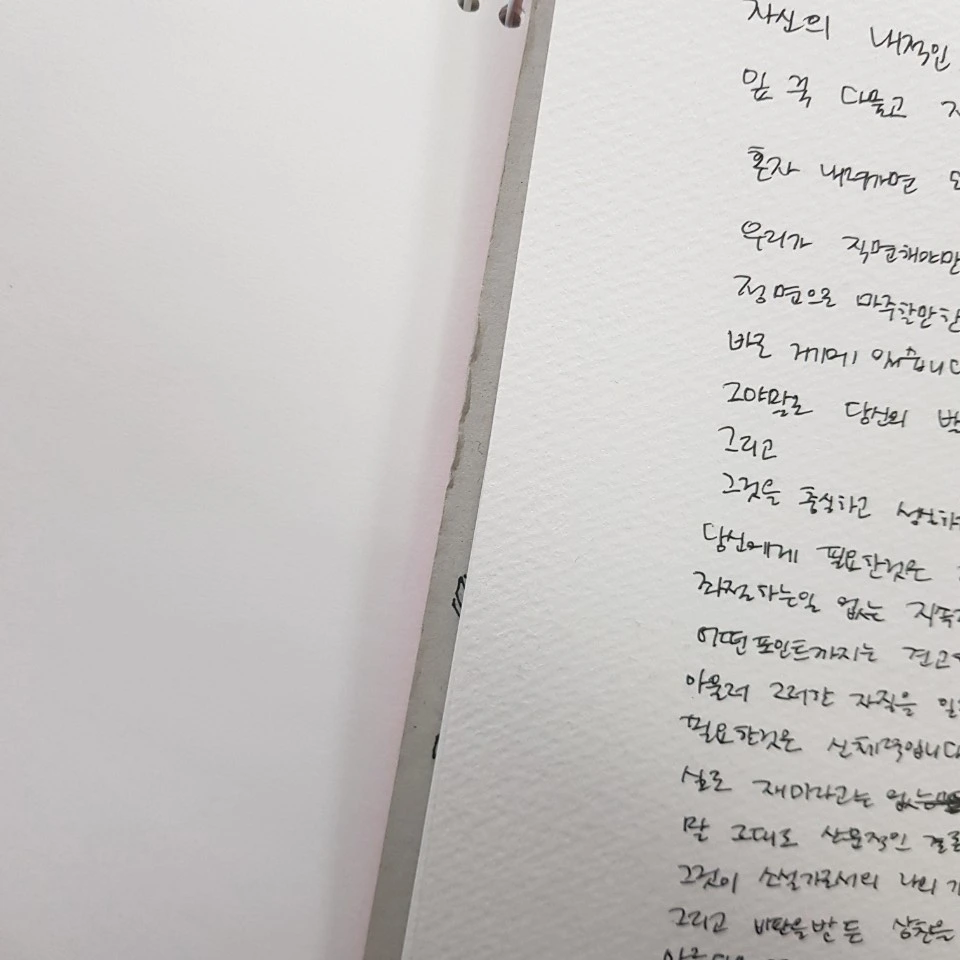 자신의 내적인
입 꾹 다물고
혼자 내려가면
우리가 직면해야만
정면으로 마주할만한
바로 거기에 있습니다
그야말로 당신의
그리고
그것을 충실하고 성실하
당신에게 필요한것은
좌절하는일 없는 지속
어떤포인트까지는 견고
아울러 그러한 자질을 일
필요한것은 신체력입니다
실로 재미라고는 없는
말 그대로 산문적인 결론
그것이 소설가로서의 나의 기
그리고 비판을받든 상찬을